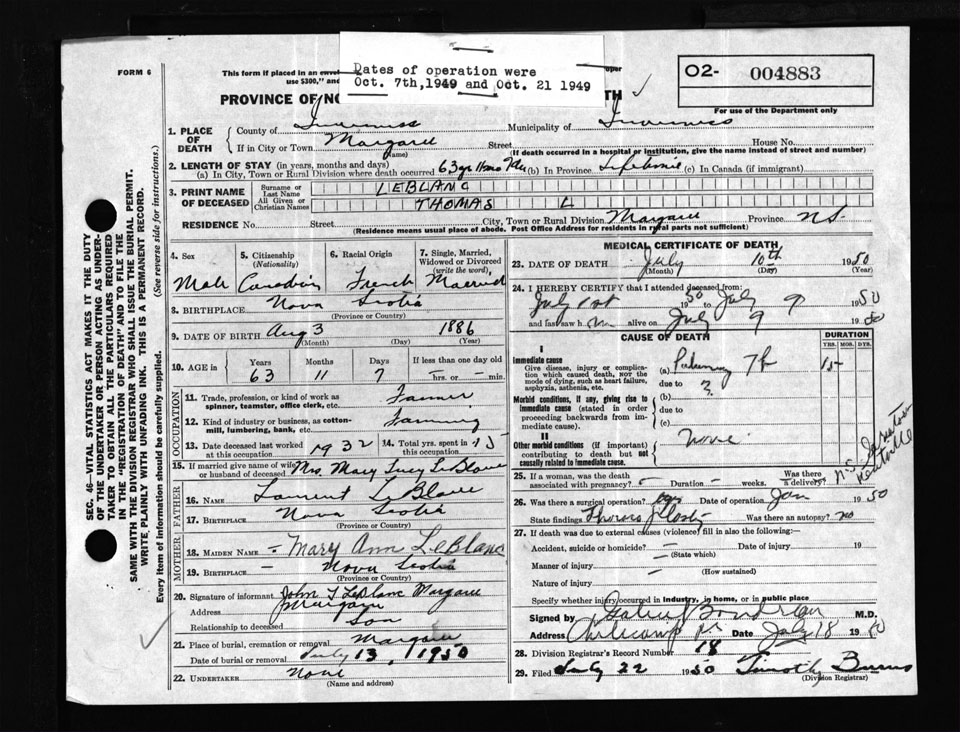 FORM 6
This form if placed in an
use $300," and
PROVINCE OF NO
Dates of operation were
Oct. 7th, 1949 and Oct. 21 1949
TH
O2- 004883
For use of the Department only
1. PLACE OF DEATH
County of Inverness Municipality of Inverness
If in City or Town Margaree Street House No.
(Name) (If death occurred in a hospital or institution, give the name instead of street and number)
2. LENGTH OF STAY (in years, months and days)
(a) In City, Town or Rural Division where death occurred 63 yrs 11 mos 7 ds (b) In Province Lifetime (c) In Canada (if immigrant)
3. PRINT NAME OF DECEASED
Surname or Last Name LEBLANC
All Given or Christian Names THOMAS L
RESIDENCE No. Street City, Town or Rural Division Margaree Province N.S.
(Residence means usual place of abode. Post Office Address for residents in rural parts not sufficient)
4. Sex 5. Citizenship (Nationality) 6. Racial Origin 7. Single, Married, Widowed or Divorced (write the word)
Male Canadian French Married
8. BIRTHPLACE Nova Scotia
(Province or Country)
9. DATE OF BIRTH Aug 3 1886
(Month) (Day) (Year)
10. AGE in Years Months Days If less than one day old
63 11 7 – hrs. or – min.
OCCUPATION
11. Trade, profession, or kind of work as spinner, teamster, office clerk, etc. Farmer
12. Kind of industry or business, as cotton-mill, lumbering, bank, etc. Farming
13. Date deceased last worked at this occupation 1932 14. Total yrs. spent in this occupation 15
15. If married give name of wife or husband of deceased Mrs. Mary Lucy LeBlanc
FATHER
16. NAME Laurent LeBlanc
17. BIRTHPLACE Nova Scotia
(Province or Country)
MOTHER
18. MAIDEN NAME – Mary Ann LeBlanc
19. BIRTHPLACE – Nova Scotia
(Province or Country)
20. Signature of informant John T LeBlanc Margaree
Address Margaree
Relationship to deceased Son
21. Place of burial, cremation or removal Margaree
Date of burial or removal July 13, 1950
22. UNDERTAKER None
(Name and address)
MEDICAL CERTIFICATE OF DEATH
23. DATE OF DEATH July 10th 1950
(Month) (Day) (Year)
24. I HEREBY CERTIFY that I attended deceased from:
July 1st 1950 to July 9 1950
and last saw him alive on July 9 1950
CAUSE OF DEATH DURATION
YRS. MOS. DYS.
I
Immediate cause
Give disease, injury or complication which caused death, NOT the mode of dying, such as heart failure, asphyxia, asthenia, etc.
(a) Pulmonary TB 15 –
due to ?
Morbid conditions, if any, giving rise to immediate cause (stated in order proceeding backwards from immediate cause).
(b)
due to
(c)
II
Other morbid conditions (if important) contributing to death but not causally related to immediate cause.
None
25. If a woman, was the death associated with pregnancy? – Duration – weeks. Was there a delivery?
N.S. Sanatorium
Kentville
26. Was there a surgical operation? yes Date of operation Jan 1950
State findings Thoracoplasty Was there an autopsy? no
27. If death was due to external causes (violence) fill in also the following:
Accident, suicide or homicide? – Date of injury 19
(State which)
Manner of injury –
(How sustained)
Nature of injury –
Specify whether injury occurred in industry, in home, or in public place
Signed by Boudreau M.D.
Address Date July 18 1950
28. Division Registrar's Record Number 18
29. Filed July 22 1950 Timothy Burns
(Division Registrar)
SEC. 46—VITAL STATISTICS ACT MAKES IT THE DUTY
OF THE UNDERTAKER OR PERSON ACTING AS UNDER-
TAKER TO OBTAIN ALL THE PARTICULARS REQUIRED
IN THE "REGISTRATION OF DEATH" AND TO FILE THE
SAME WITH THE DIVISION REGISTRAR WHO SHALL ISSUE THE BURIAL PERMIT.
WRITE PLAINLY WITH UNFADING INK. THIS IS A PERMANENT RECORD.
Every item of information should be carefully supplied. (See reverse side for instructions.)